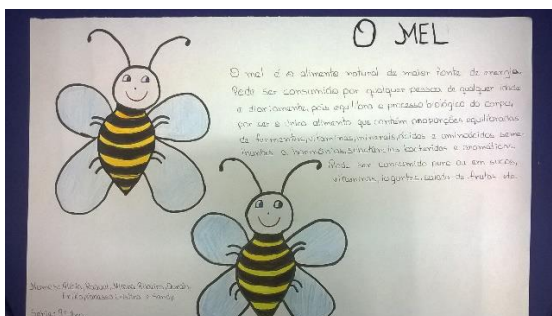 O MEL
O mel é o alimento natural de maior fonte de energia.
Pode ser consumido por qualquer pessoa de qualquer idade
e diariamente, pois equilibra o processo biológico do corpo,
por ser o único alimento que contém proporções equilibradas
de fermentos, vitaminas, minerais, ácidos e aminoácidos seme-
lhantes a hormônios, bactericidas e aromáticas.
Pode ser consumido puro ou em sucos,
vitaminas, iogurtes, salada de frutas etc.
Nomes: Raquel,
e Sandy
Série: